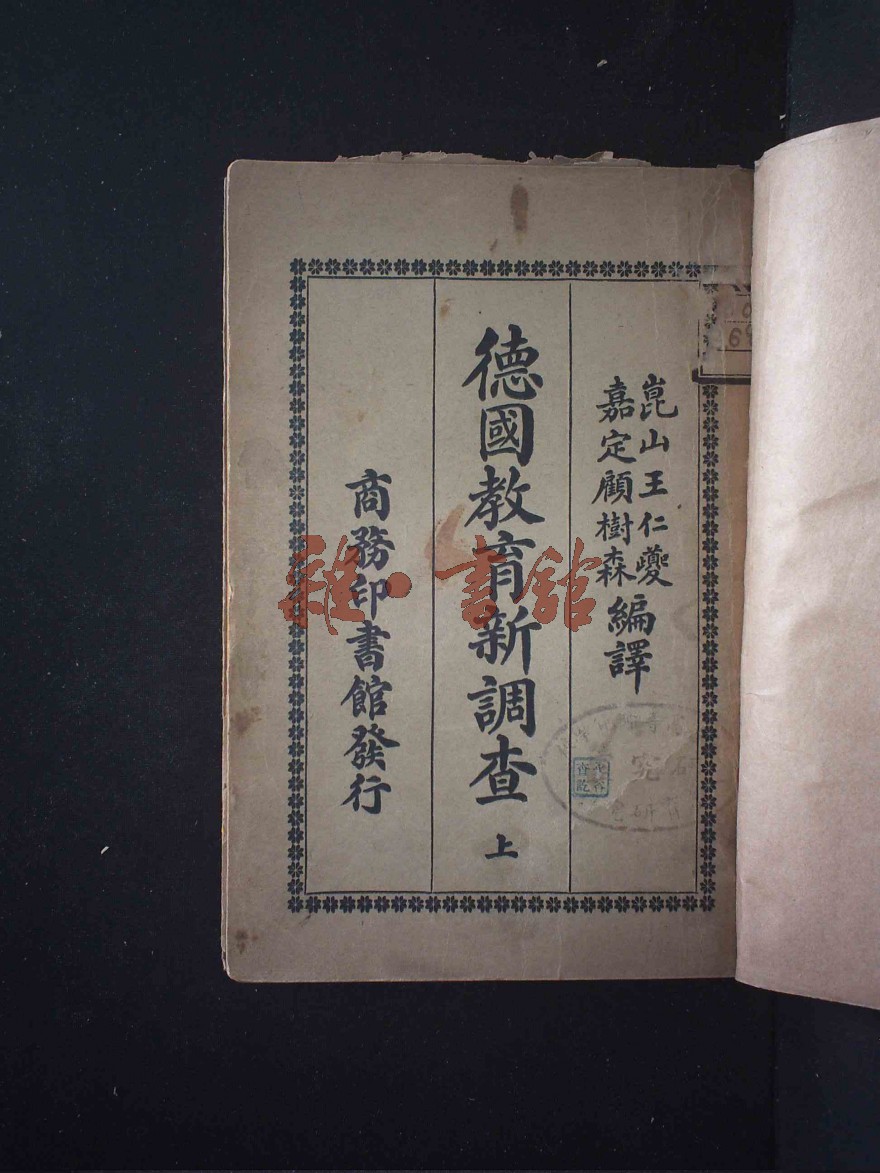 崑山王仁夔
嘉定顧樹森
編譯
德國教育新調查 上
商務印書館發行
雜·書館